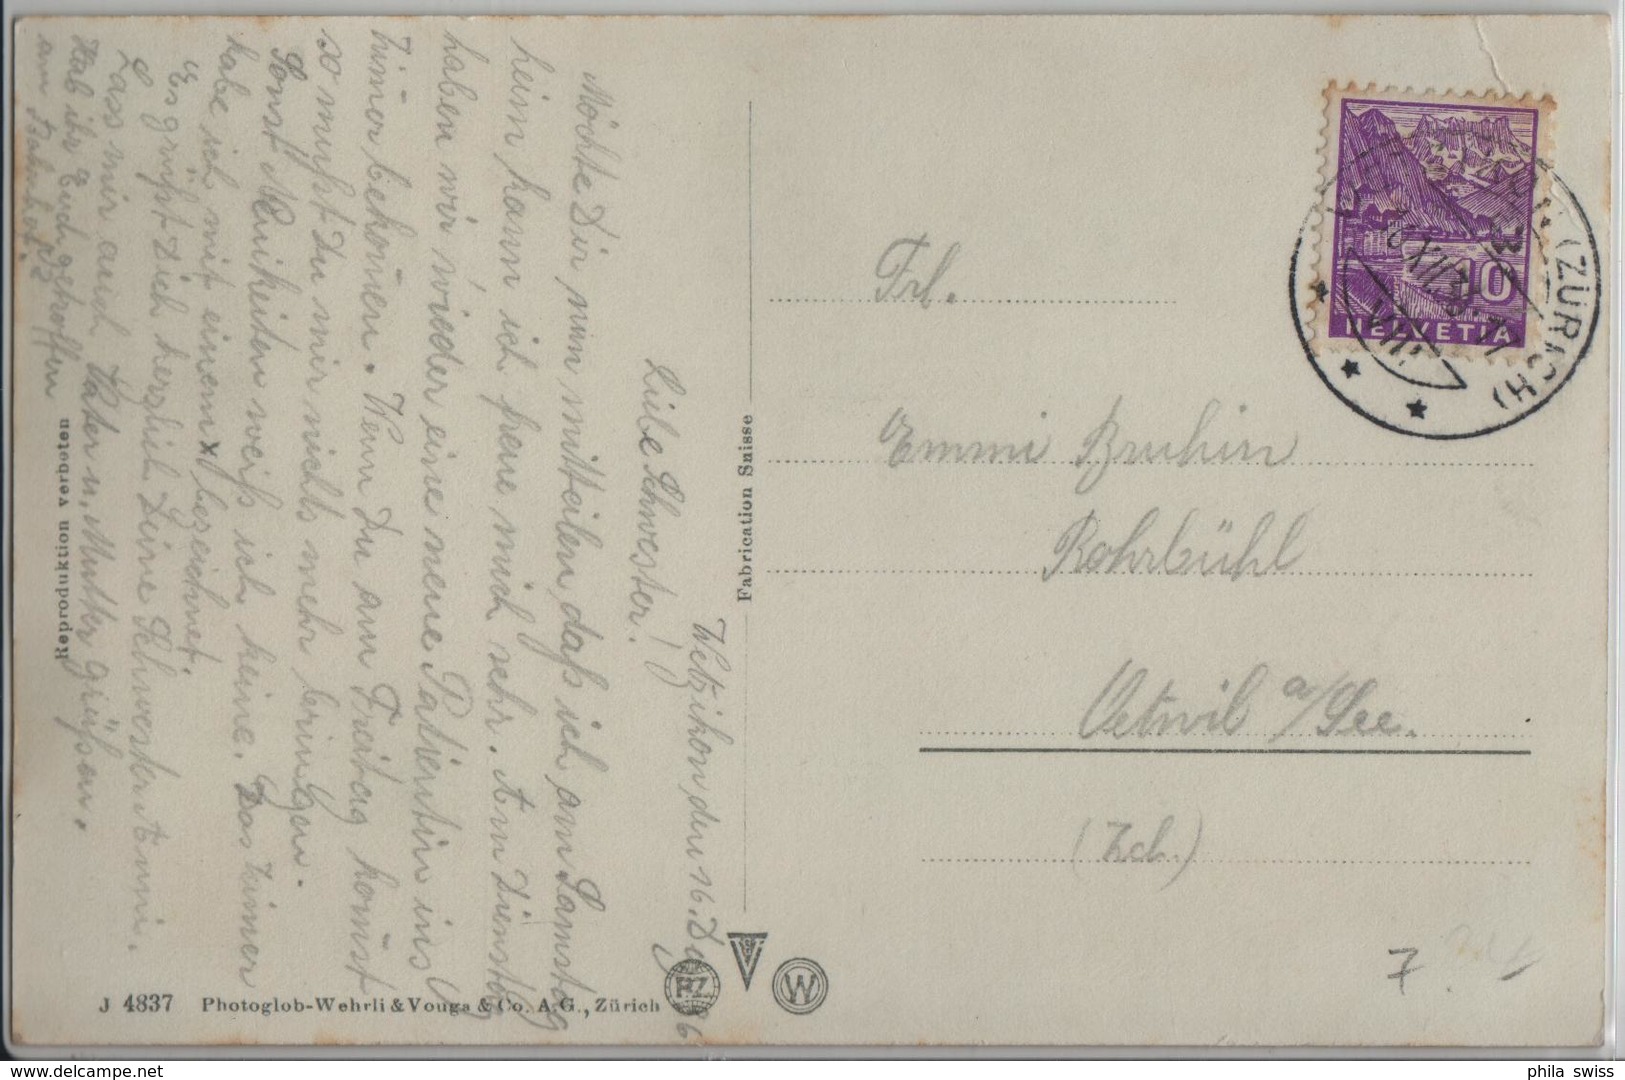 Wetzikon den 16. Dez. 36
Liebe Schwester!
Möchte Dir nun mitteilen, daß ich am Samstag
heim kann ich freue mich sehr. Am Dienstag
haben wir wieder eine neue Patientin ins
Zimer bekomen. Wenn Du am Freitag komst
so mußt Du mir nichts mehr bringen.
Sonst Neuikeiten weiß ich keine. Das Zimer
habe ich mit einem x bezeichnet.
Es grüßt Dich herzlich Deine Schwester Anni.
Lass mir auch Vater u. Mutter grüßen.
Hab ihr Euch getroffen
am Bahnhof.
Reproduktion verboten
J 4837 Photoglob-Wehrli & Vouga & Co. A.G., Zürich
P.Z.
W
Fabrication Suisse
Frl.
Emmi Bruhin
Rohrbühl
Oetwil a/See.
(Zch.)
10
HELVETIA
(ZÜRICH)
7.
phila swiss